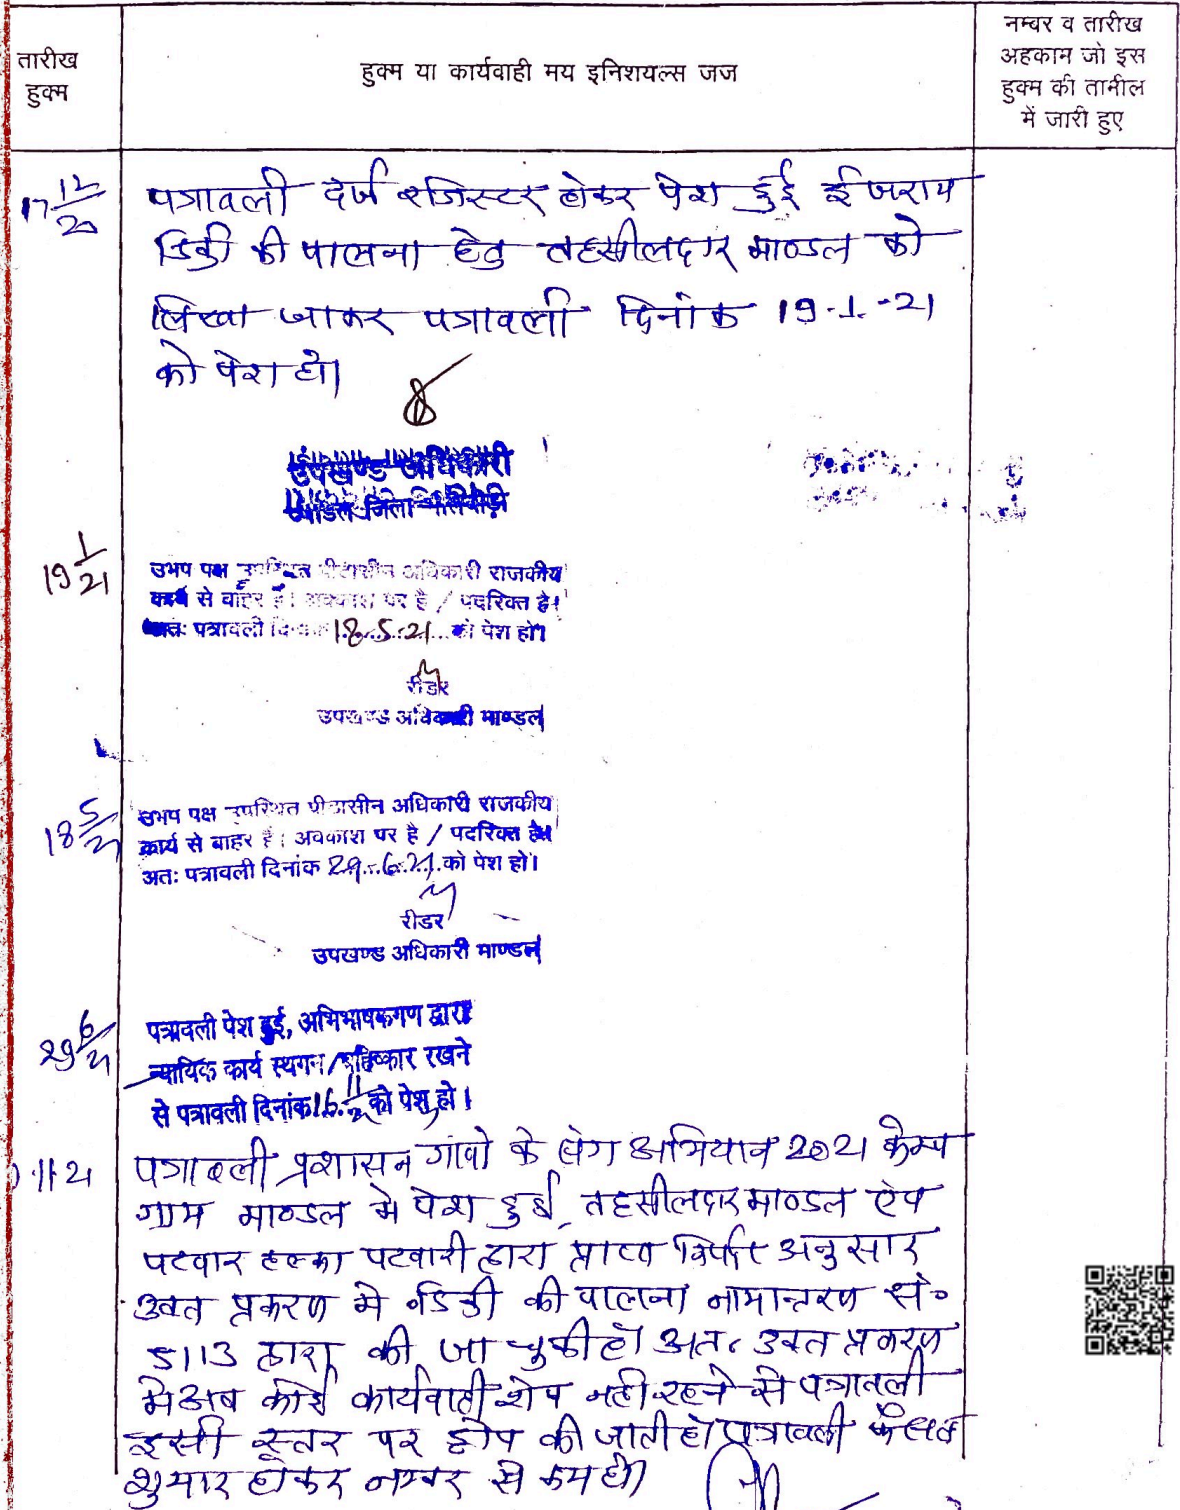 तारीख
हुक्म
हुक्म या कार्यवाही मय इनिशयल्स जज
नम्बर व तारीख
अहकाम जो इस
हुक्म की तामील
में जारी हुए
17 12/20
पत्रावली दर्ज रजिस्टर होकर पेश हुई ईजराय
डिक्री की पालना हेतु तहसीलदार माण्डल को
लिखा जाकर पत्रावली दिनांक 19-1-21
को पेश हो।
उपखण्ड अधिकारी
19 1/21
उभय पक्ष उपस्थित पीठासीन अधिकारी राजकीय
कार्य से बाहर है। अवकाश पर है / पदरिक्त है।
अतः पत्रावली दिनांक 18-5-21 को पेश हो।
रीडर
उपखण्ड अधिकारी माण्डल
18 5/21
उभय पक्ष उपस्थित पीठासीन अधिकारी राजकीय
कार्य से बाहर है। अवकाश पर है / पदरिक्त है।
अतः पत्रावली दिनांक 29.6.21 को पेश हो।
रीडर
उपखण्ड अधिकारी माण्डल
29 6/21
पत्रावली पेश हुई, अभिभाषकगण द्वारा
न्यायिक कार्य स्थगन/बहिष्कार रखने
से पत्रावली दिनांक 16. 11/21 को पेश हो।
11-21
पत्रावली प्रशासन गांवो के संग अभियान 2021 केम्प
ग्राम माण्डल मे पेश हुई, तहसीलदार माण्डल एंव
पटवार हल्का पटवारी द्वारा प्राप्त रिपोर्ट अनुसार
उक्त प्रकरण मे डिक्री की पालना नामान्तरण सं०
5113 द्वारा की जा चुकी है। अतः उक्त प्रकरण
मे अब कोई कार्यवाही शेष नही रहने से पत्रावली
इसी स्तर पर ड्रोप की जाती है। पत्रावली फैसल
शुमार होकर नम्बर से कम हो।